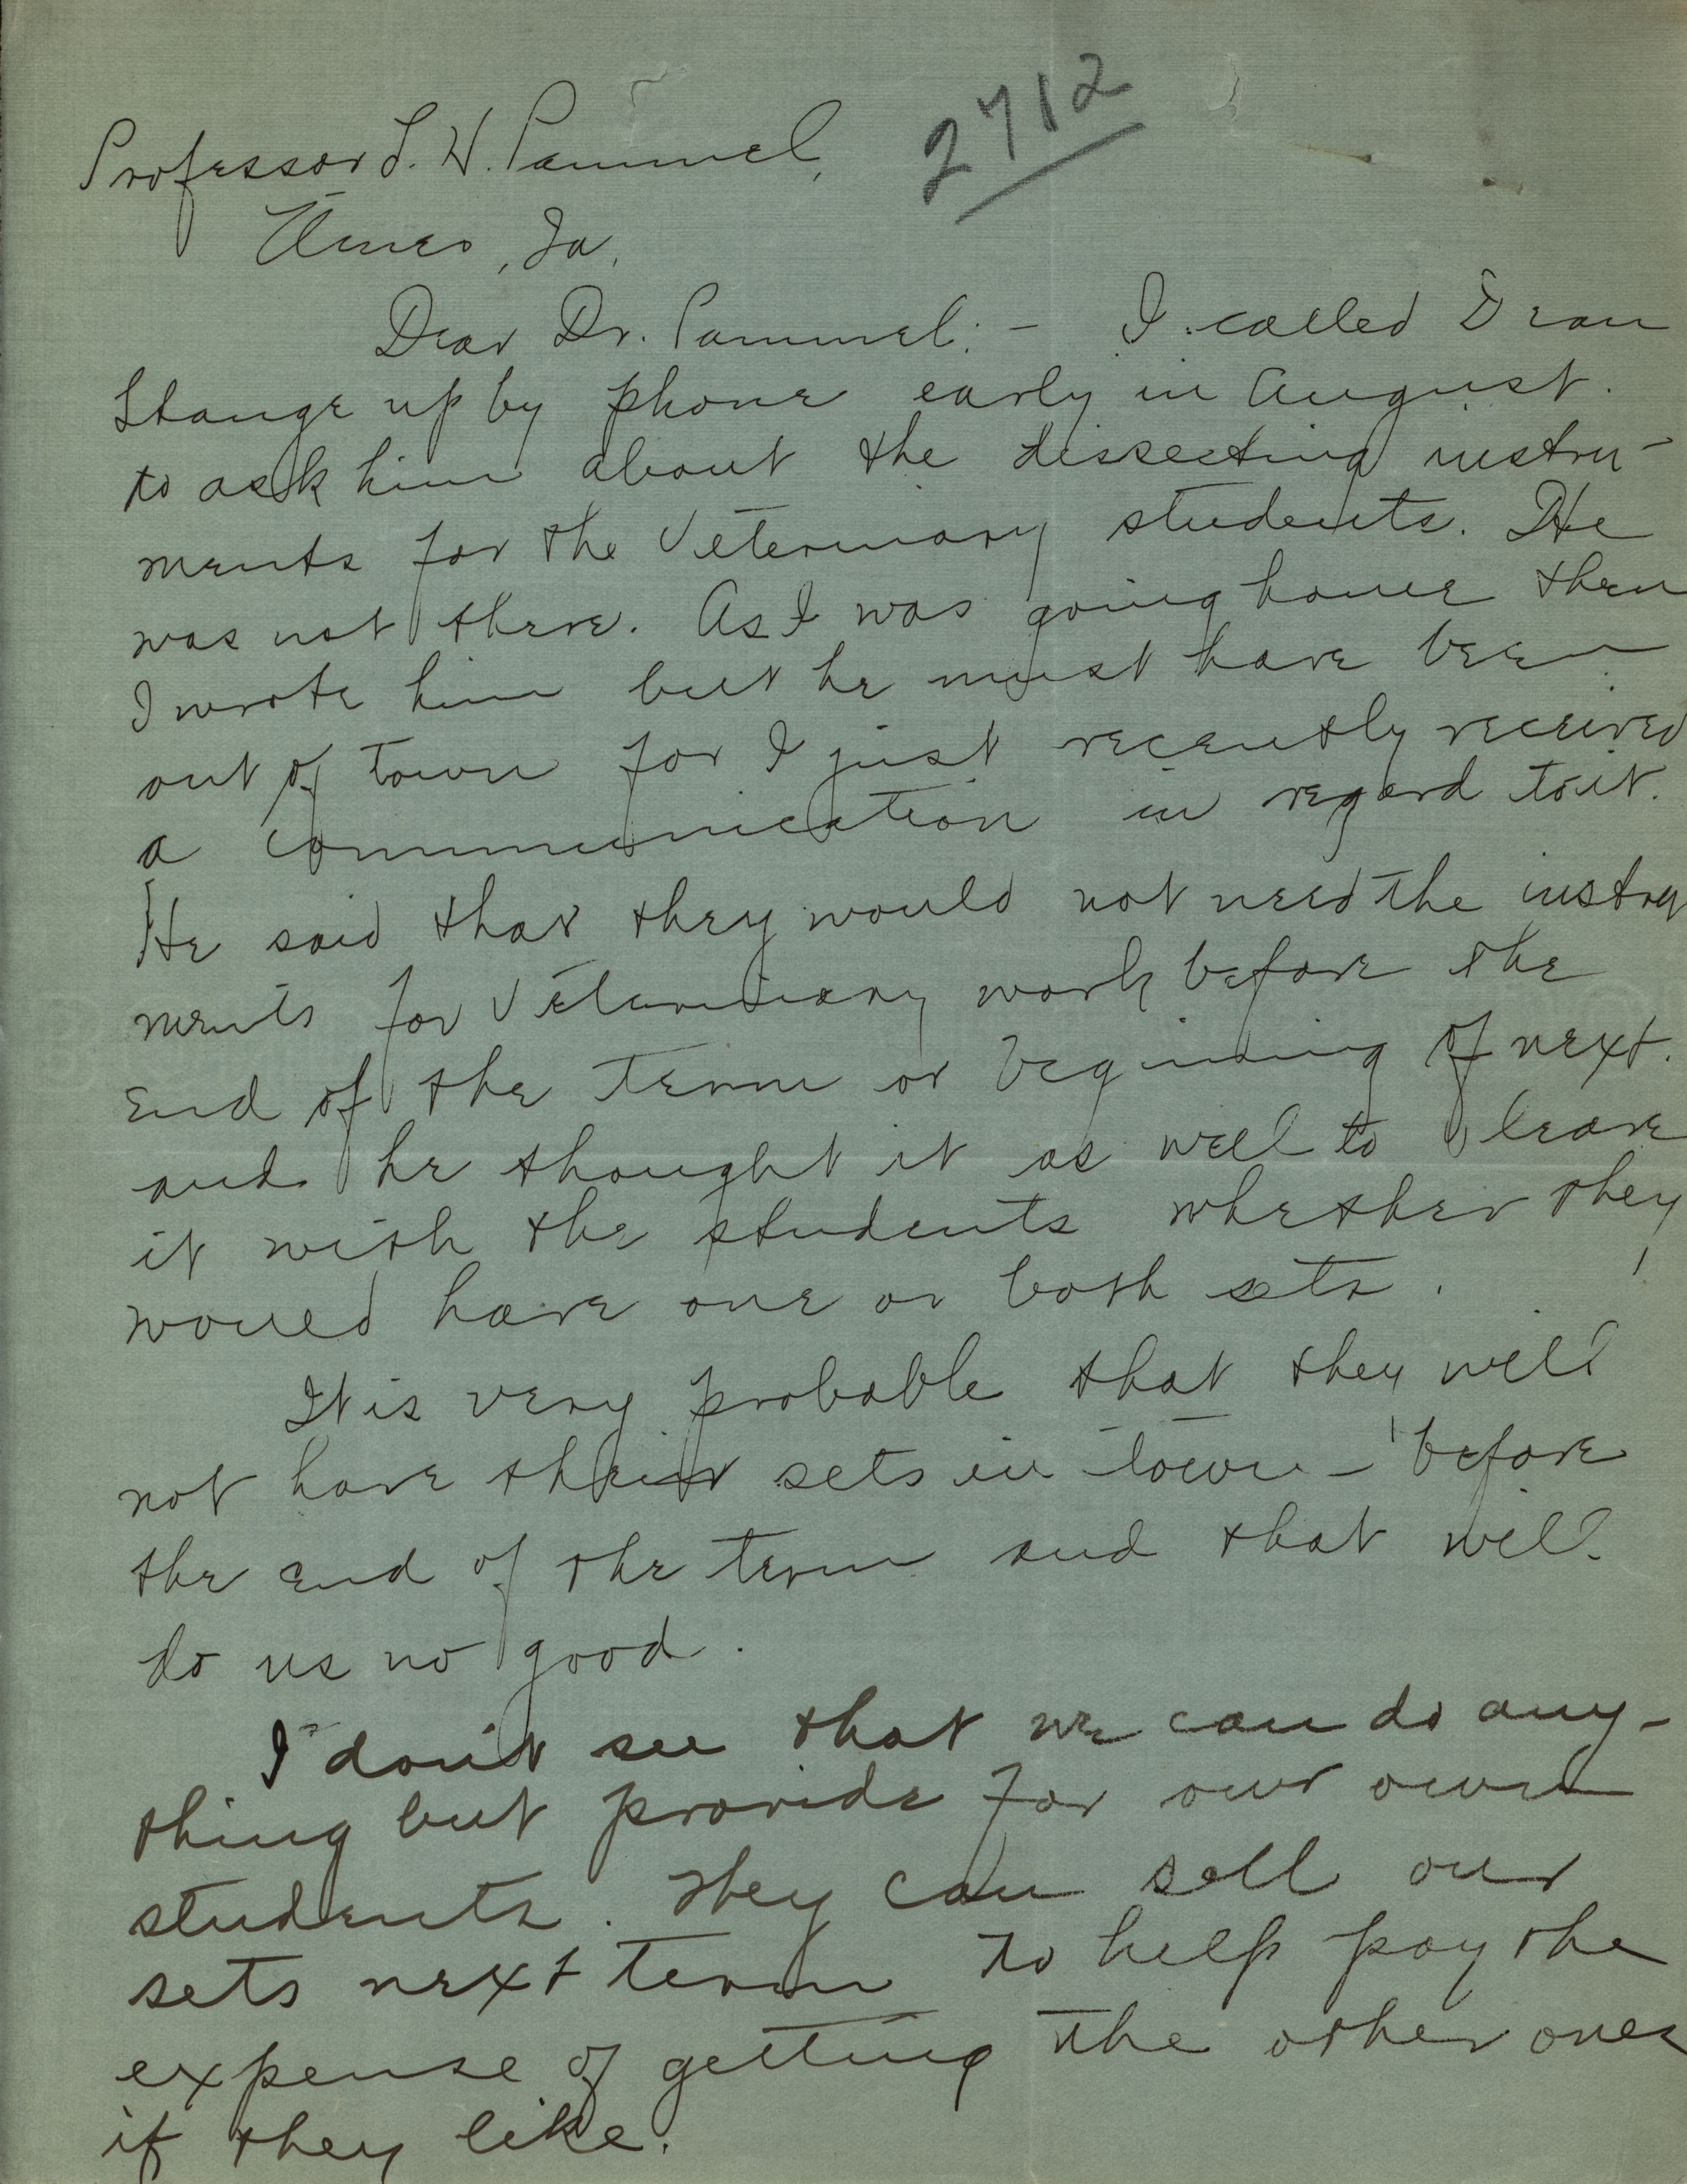 2712
Professor L. H. Pammel,
Ames, Ia.
Dear Dr. Pammel: - I called Dean
Stange up by phone early in August.
to ask him about the dissecting instru-
ments for the Veterinary students. He
was not there. As I was going home then
I wrote him but he must have been
out of town for I just recently received
a communication in regard to it.
He said that they would not need the instru
ments for Veterinary work before the
end of the term or begining of next.
and he thought it as well to leave
it with the students whether they
would have one or both sets.
It is very probable that they will
not have their sets in town - before
the end of the term and that will
do us no good.
I don't see that we can do any-
thing but provide for our own
students. They can sell our
sets next term to help pay the
expense of getting the other ones
if they like.